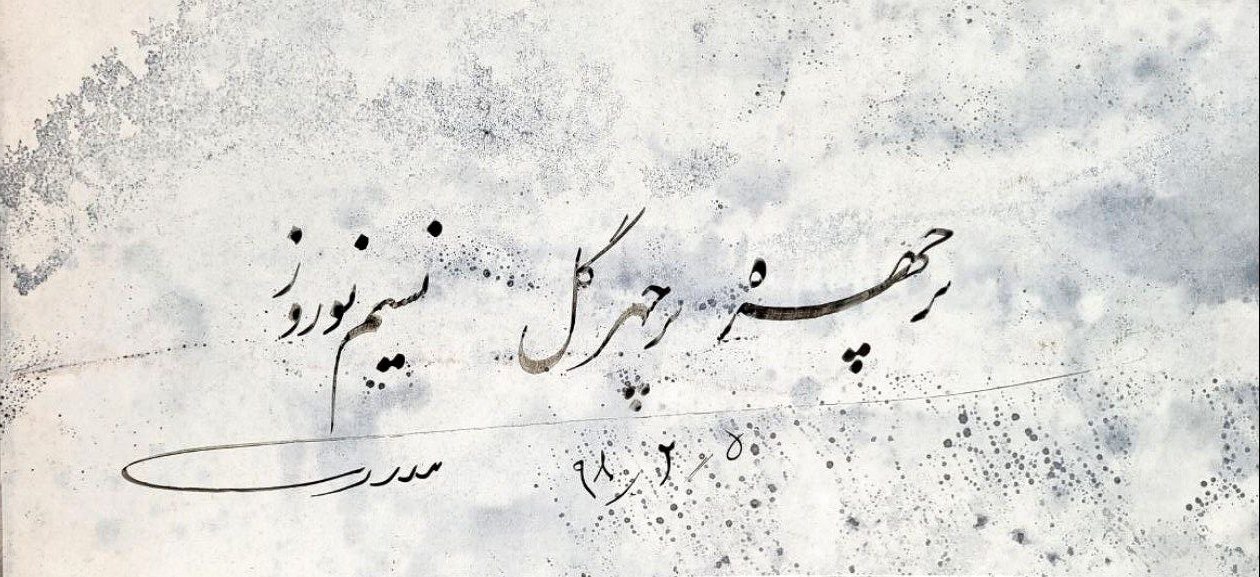 بر چهره بر چهر گل نسیم نوروز
۹۸/۲/۵